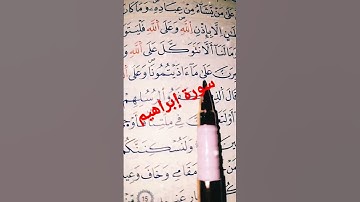 عَلَىٰ مَن يَشَآءُ مِنْ عِبَادِهِۦ وَمَا كَانَ
إِلَّا بِإِذْنِ ٱللَّهِ وَعَلَى ٱللَّهِ فَلْيَتَوَ
لَنَآ أَلَّا نَتَوَكَّلَ عَلَى ٱللَّهِ
عَلَىٰ مَآ ءَاذَيْتُمُونَا وَعَلَى
سورة إبراهيم
قَالَ لِرُسُلِهِمْ
فِى مِلَّتِنَا
وَلَنُسْكِنَنَّكُمُ
مَقَامِى وَخَافَ وَعِيدِ
15